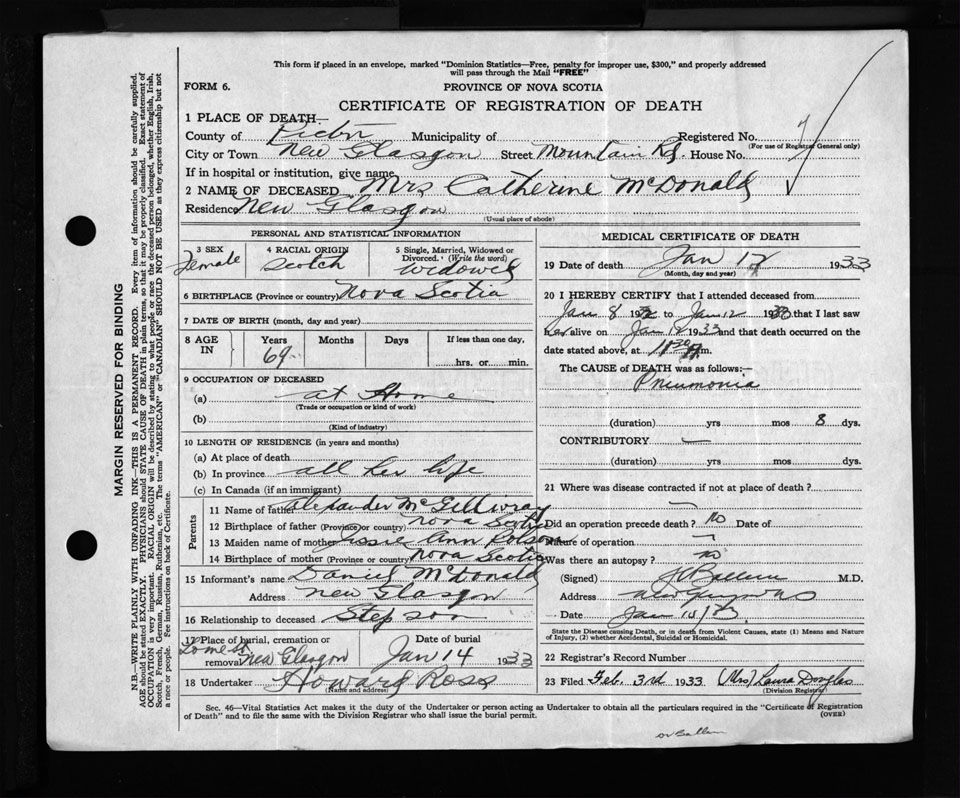 This form if placed in an envelope, marked "Dominion Statistics—Free, penalty for improper use, $300," and properly addressed
will pass through the Mail "FREE"
FORM 6.
PROVINCE OF NOVA SCOTIA
CERTIFICATE OF REGISTRATION OF DEATH
1 PLACE OF DEATH—
County of Pictou Municipality of Registered No.
(For use of Registrar General only)
City or Town New Glasgow Street Mountain Rd. House No.
If in hospital or institution, give name
2 NAME OF DECEASED Mrs Catherine McDonald
Residence New Glasgow
(Usual place of abode)
PERSONAL AND STATISTICAL INFORMATION
3 SEX Female
4 RACIAL ORIGIN Scotch
5 Single, Married, Widowed or Divorced. (Write the word) Widowed
6 BIRTHPLACE (Province or country) Nova Scotia
7 DATE OF BIRTH (month, day and year)
8 AGE IN Years 69 Months Days If less than one day, hrs. or min.
9 OCCUPATION OF DECEASED
(a) at Home
(Trade or occupation or kind of work)
(b)
(Kind of industry)
10 LENGTH OF RESIDENCE (in years and months)
(a) At place of death
(b) In province all her life
(c) In Canada (if an immigrant)
Parents
11 Name of father Alexander McGillivray
12 Birthplace of father (Province or country) Nova Scotia
13 Maiden name of mother Jessie Ann Polson
14 Birthplace of mother (Province or country) Nova Scotia
15 Informant's name Daniel McDonald
Address New Glasgow
16 Relationship to deceased Step son
17 Place of burial, cremation or removal New Glasgow
Date of burial Jan 14 1933
18 Undertaker Howard Ross
(Name and address)
MEDICAL CERTIFICATE OF DEATH
19 Date of death Jan 12 1933
(Month, day and year)
20 I HEREBY CERTIFY that I attended deceased from
Jan 8 19 to Jan 12 19 that I last saw
her alive on Jan 1933 and that death occurred on
date stated above, at 11 30 m.
The CAUSE of DEATH was as follows:—
Pneumonia
(duration) yrs mos 8 dys.
CONTRIBUTORY —
(duration) yrs mos dys.
21 Where was disease contracted if not at place of death?
—
Did an operation precede death? no Date of
Nature of operation —
Was there an autopsy? no
(Signed) M.D.
Address
Date Jan
State the Disease causing Death, or in death from Violent Causes, state (1) Means and Nature
of Injury, (2) whether Accidental, Suicidal or Homicidal.
22 Registrar's Record Number
23 Filed Feb. 3rd 1933 (Mrs) Laura Douglas
(Division Registrar)
Sec. 46—Vital Statistics Act makes it the duty of the Undertaker or person acting as Undertaker to obtain all the particulars required in the "Certificate of Registration
of Death" and to file the same with the Division Registrar who shall issue the burial permit.
(OVER)
MARGIN RESERVED FOR BINDING
N.B.—WRITE PLAINLY WITH UNFADING INK—THIS IS A PERMANENT RECORD. Every item of information should be carefully supplied.
AGE should be stated EXACTLY. PHYSICIANS should STATE CAUSE OF DEATH in plain terms, so that it may be properly classified. Exact statement of
OCCUPATION is very important. RACIAL ORIGIN will be described by stating to what people or race the deceased person belonged, whether English, Irish,
Scotch, French, German, Russian, Ruthenian, etc. The terms "AMERICAN" or "CANADIAN" SHOULD NOT BE USED as they express citizenship but not
a race or people. See instructions on back of Certificate.